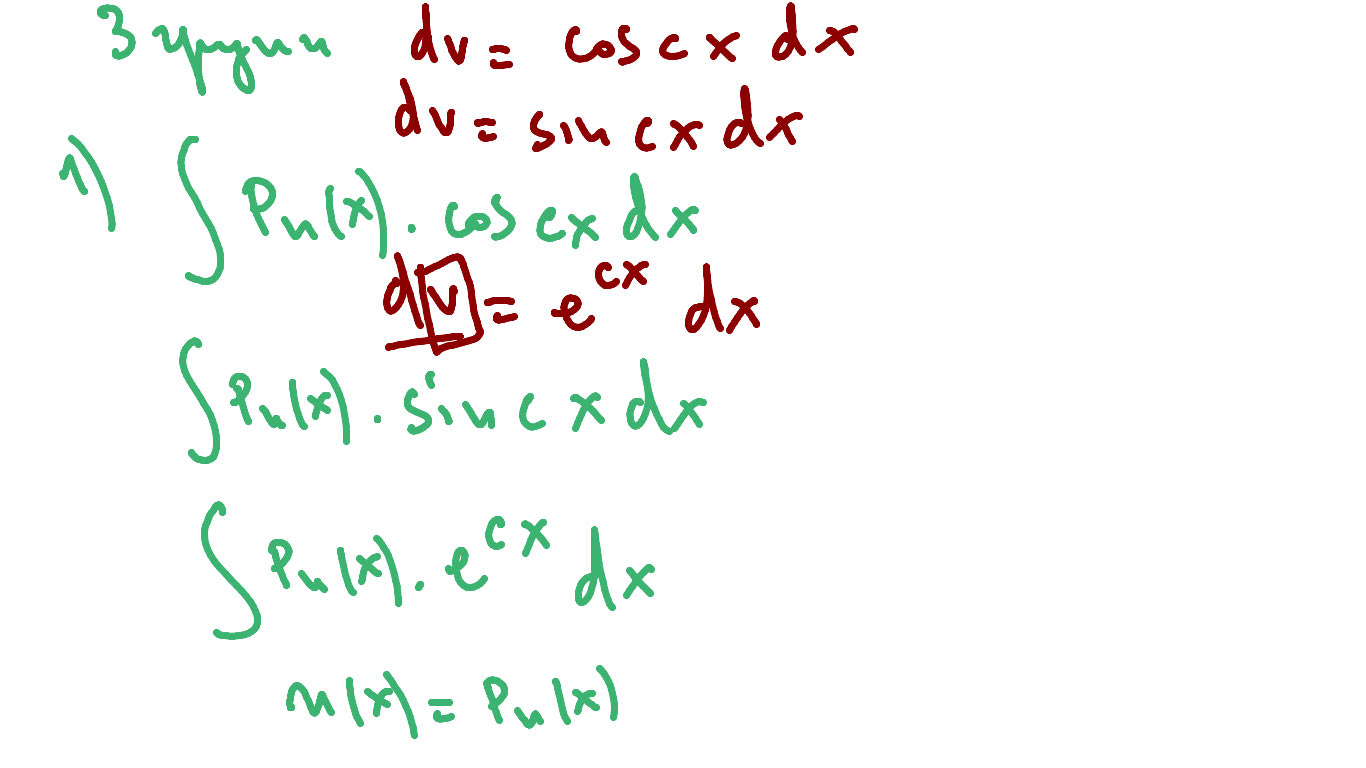 3 групи dv = cos cx dx
dv = sin cx dx
1) ∫ Pn(x) · cos cx dx
dv = e^{cx} dx
∫ Pn(x) · sin cx dx
∫ Pn(x) · e^{cx} dx
u(x) = Pn(x)